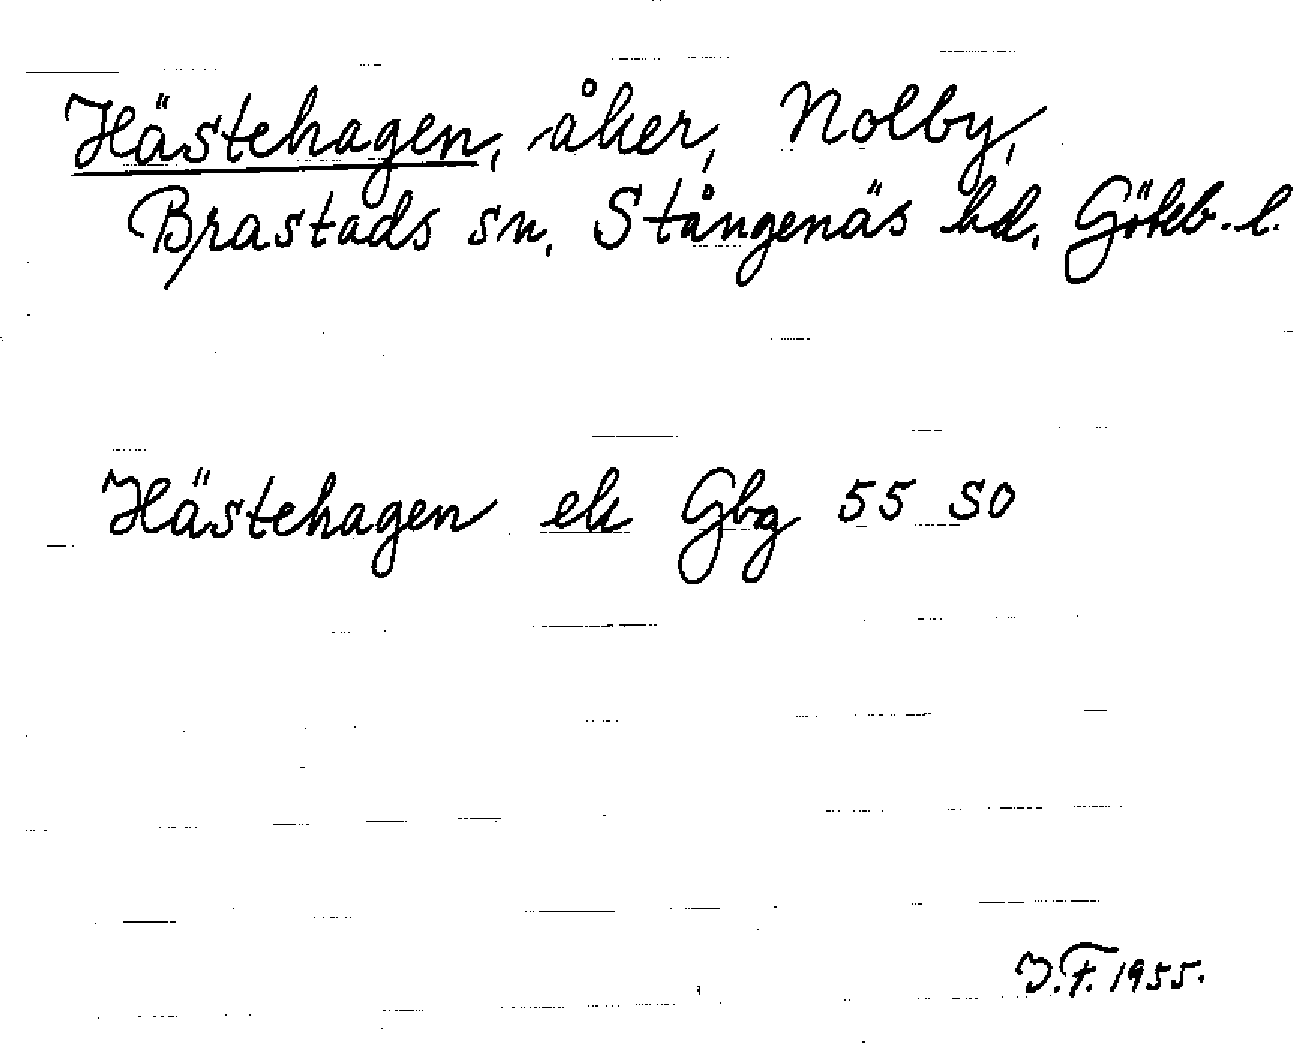 Hästehagen, åker, Nolby,
Brastads sn, Stångenäs hd, Göteb. l.
Hästehagen ek Gbg 55 SO
J.F. 1955.